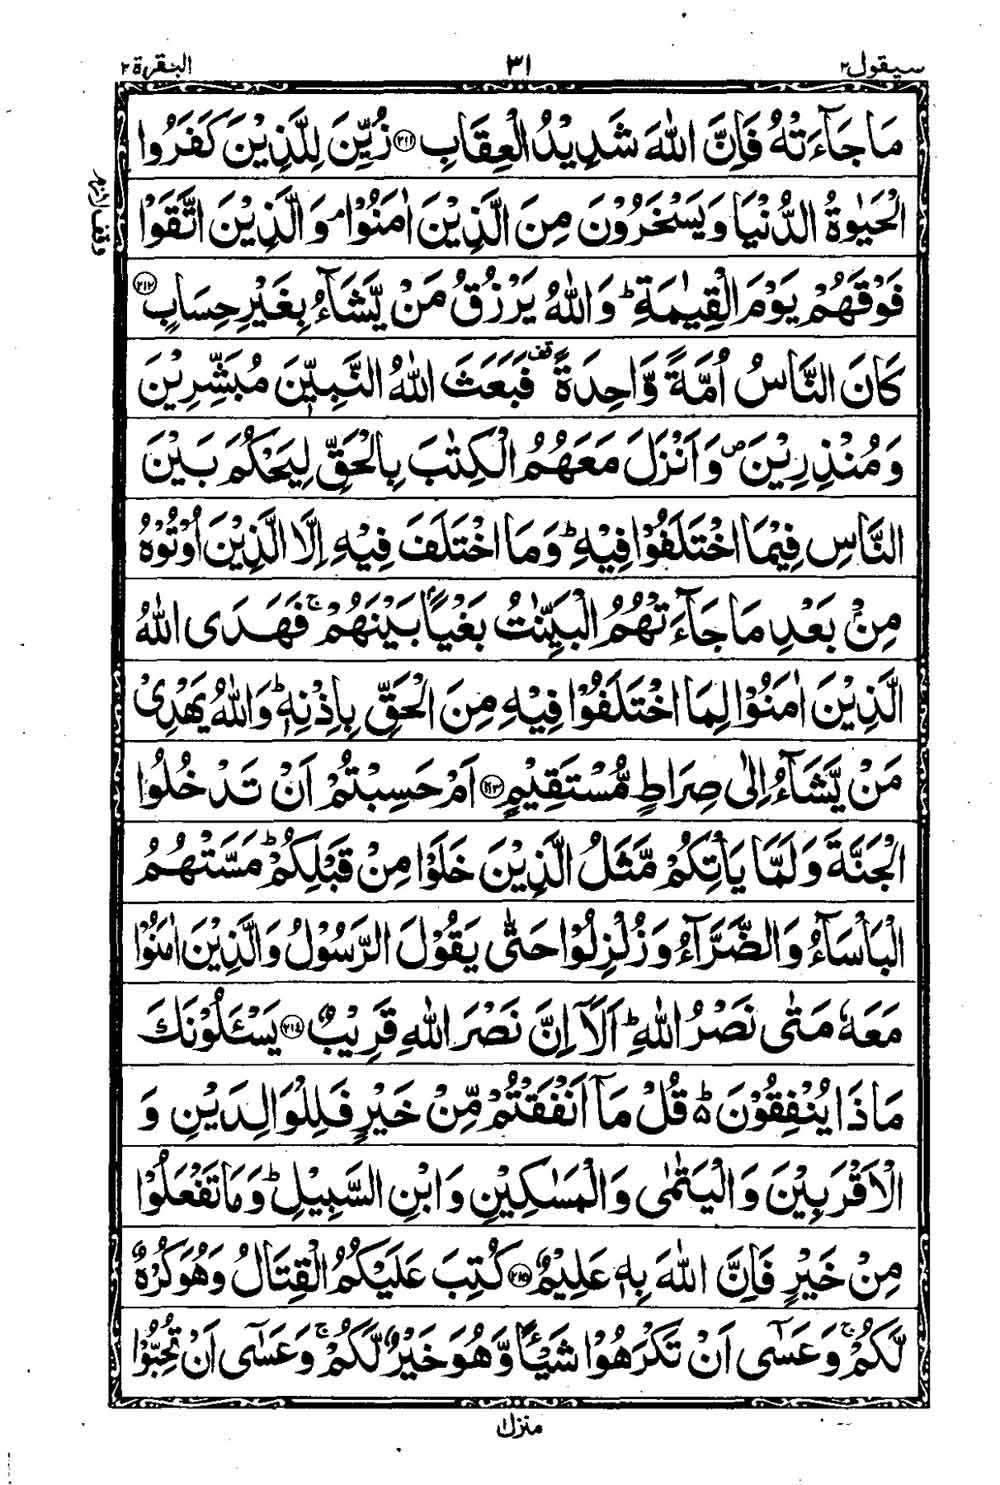 سيقول ٢ ٣١ البقرة ٢
مَا جَآءَتْهُ فَاِنَّ اللّٰهَ شَدِيْدُ الْعِقَابِ ﴿۲۱۱﴾ زُيِّنَ لِلَّذِيْنَ كَفَرُوا
الْحَيٰوةُ الدُّنْيَا وَيَسْخَرُوْنَ مِنَ الَّذِيْنَ اٰمَنُوْا ۘ وَالَّذِيْنَ اتَّقَوْا
فَوْقَهُمْ يَوْمَ الْقِيٰمَةِ ؕ وَاللّٰهُ يَرْزُقُ مَنْ يَّشَآءُ بِغَيْرِ حِسَابٍ ﴿۲۱۲﴾
كَانَ النَّاسُ اُمَّةً وَّاحِدَةً قف فَبَعَثَ اللّٰهُ النَّبِيّٖنَ مُبَشِّرِيْنَ
وَمُنْذِرِيْنَ ص وَاَنْزَلَ مَعَهُمُ الْكِتٰبَ بِالْحَقِّ لِيَحْكُمَ بَيْنَ
النَّاسِ فِيْمَا اخْتَلَفُوْا فِيْهِ ؕ وَمَا اخْتَلَفَ فِيْهِ اِلَّا الَّذِيْنَ اُوْتُوْهُ
مِنْۢ بَعْدِ مَا جَآءَتْهُمُ الْبَيِّنٰتُ بَغْيًۢا بَيْنَهُمْ ۚ فَهَدَى اللّٰهُ
الَّذِيْنَ اٰمَنُوْا لِمَا اخْتَلَفُوْا فِيْهِ مِنَ الْحَقِّ بِاِذْنِهٖ ؕ وَاللّٰهُ يَهْدِيْ
مَنْ يَّشَآءُ اِلٰى صِرَاطٍ مُّسْتَقِيْمٍ ﴿۲۱۳﴾ اَمْ حَسِبْتُمْ اَنْ تَدْخُلُوا
الْجَنَّةَ وَلَمَّا يَاْتِكُمْ مَّثَلُ الَّذِيْنَ خَلَوْا مِنْ قَبْلِكُمْ ؕ مَسَّتْهُمُ
الْبَاْسَآءُ وَالضَّرَّآءُ وَزُلْزِلُوْا حَتّٰى يَقُوْلَ الرَّسُوْلُ وَالَّذِيْنَ اٰمَنُوْا
مَعَهٗ مَتٰى نَصْرُ اللّٰهِ ؕ اَلَاۤ اِنَّ نَصْرَ اللّٰهِ قَرِيْبٌ ﴿۲۱۴﴾ يَسْـَٔلُوْنَكَ
مَاذَا يُنْفِقُوْنَ ؕ قُلْ مَاۤ اَنْفَقْتُمْ مِّنْ خَيْرٍ فَلِلْوَالِدَيْنِ وَ
الْاَقْرَبِيْنَ وَالْيَتٰمٰى وَالْمَسٰكِيْنِ وَابْنِ السَّبِيْلِ ؕ وَمَا تَفْعَلُوْا
مِنْ خَيْرٍ فَاِنَّ اللّٰهَ بِهٖ عَلِيْمٌ ﴿۲۱۵﴾ كُتِبَ عَلَيْكُمُ الْقِتَالُ وَهُوَ كُرْهٌ
لَّكُمْ ۚ وَعَسٰۤى اَنْ تَكْرَهُوْا شَيْـًٔا وَّهُوَ خَيْرٌ لَّكُمْ ۚ وَعَسٰۤى اَنْ تُحِبُّوْا
منزل